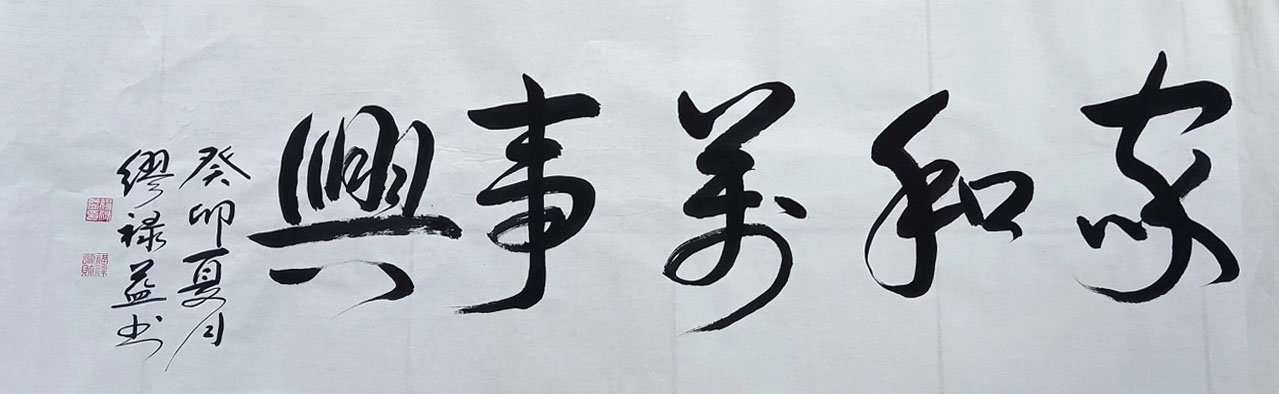 家和萬事興
癸卯夏月
繆祿益书